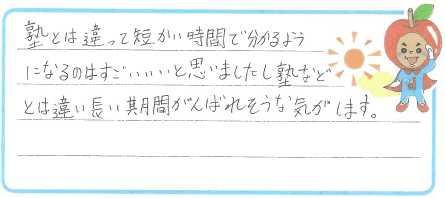 塾とは違って短かい時間で分かるよう
になるのはすごいいいと思いましたし塾など
とは違い長い期間がんばれそうな気がします。